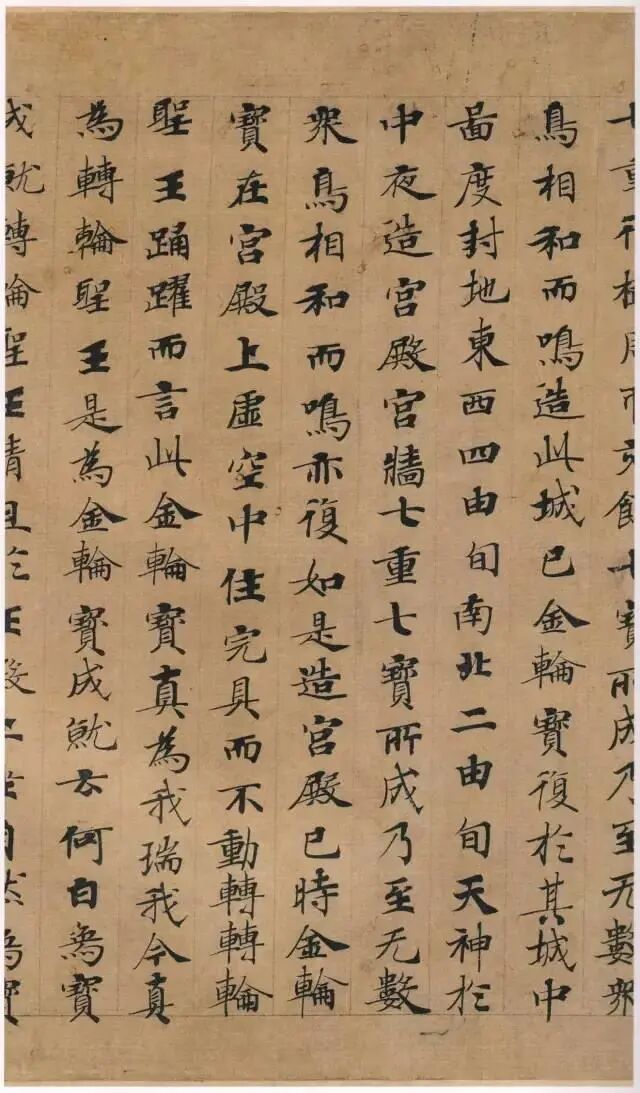 七重行樹周匝交飾七寶所成乃至无數眾
鳥相和而鳴造此城已金輪寶復於其城中
啚度封地東西四由旬南北二由旬天神於
中夜造宮殿宮牆七重七寶所成乃至无數
眾鳥相和而鳴亦復如是造宮殿已時金輪
寶在宮殿上虛空中住完具而不動轉轉輪
聖王踊躍而言此金輪寶真為我瑞我今真
為轉輪聖王是為金輪寶成就云何白象寶
成就轉輪聖王清旦於正殿上坐自然象寶